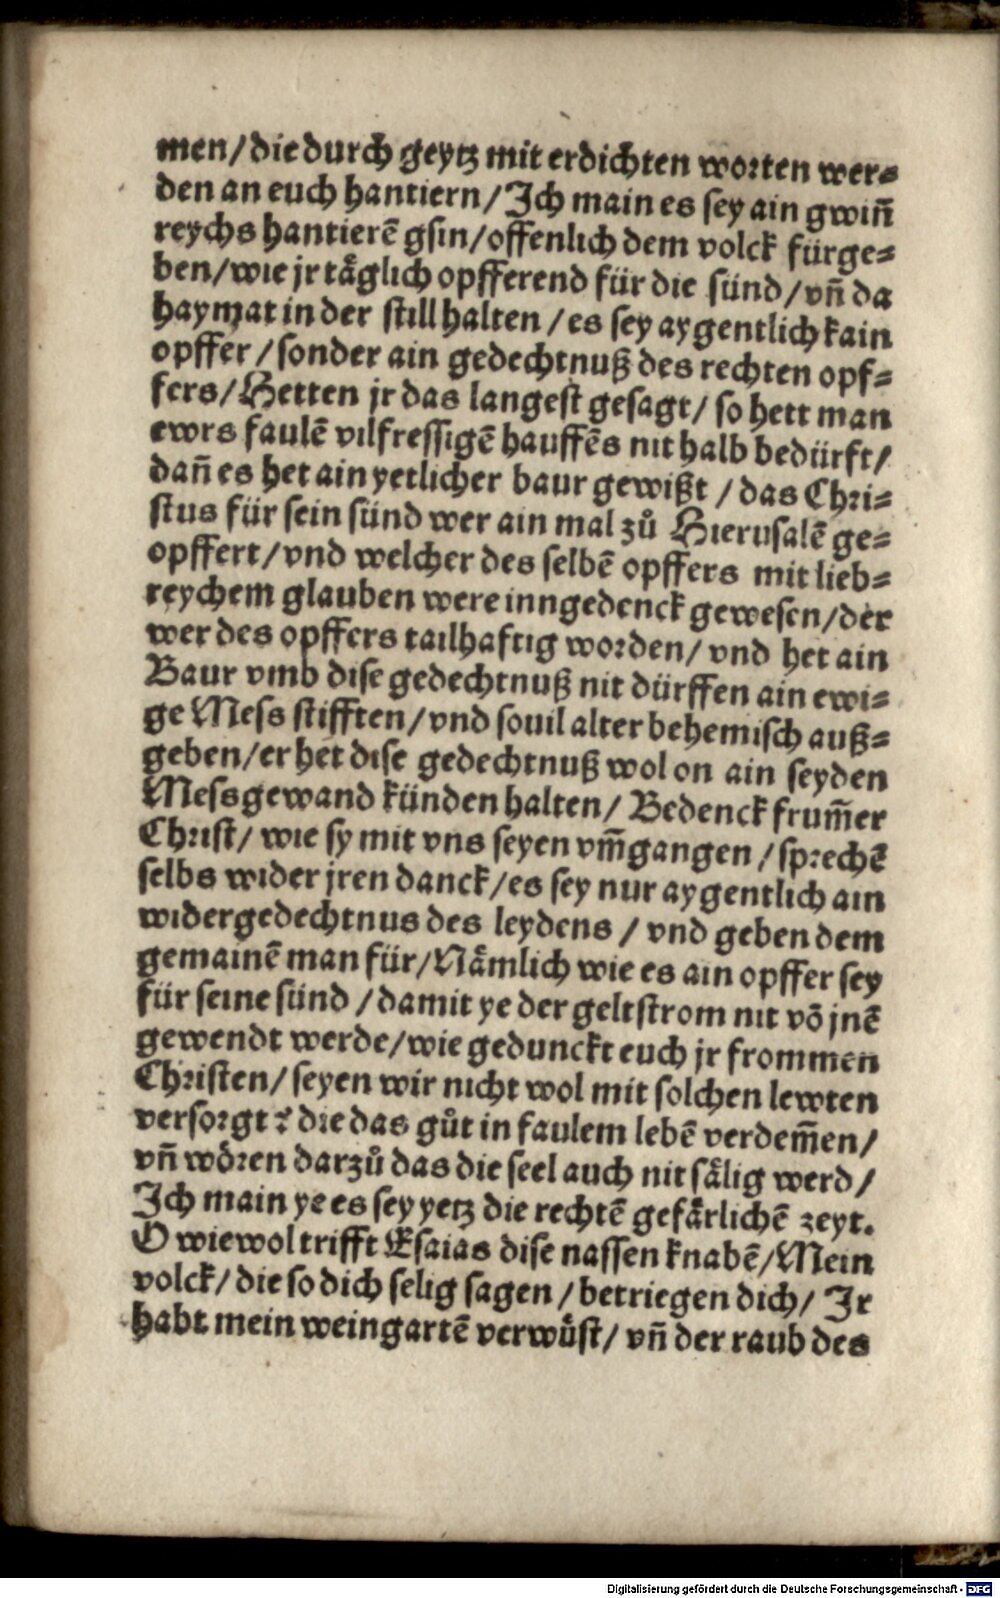 men/die durch geytz mit erdichten worten wer⸗
den an euch hantiern/Ich main es sey ain gwiñ
reychs hantierẽ gsin/offenlich dem volck fürge⸗
ben/wie jr tåglich opfferend für die sünd/vñ da
haymat in der still halten/es sey aygentlich kain
opffer/sonder ain gedechtnuß des rechten opf⸗
fers/Hetten jr das langest gesagt/so hett man
ewrs faulẽ vilfressigẽ hauffẽs nit halb bedürft/
dañ es het ain yetlicher baur gewißt/das Chri⸗
stus für sein sünd wer ain mal zů Hierusalẽ ge⸗
opffert/vnd welcher des selbẽ opffers mit lieb⸗
reychem glauben were inngedenck gewesen/der
wer des opffers tailhaftig worden/vnd het ain
Baur vmb dise gedechtnuß nit dürffen ain ewi⸗
ge Mess stifften/vnd souil alter behemisch auß⸗
geben/er het dise gedechtnuß wol on ain seyden
Messgewand künden halten/Bedenck frum̃er
Christ/wie sy mit vns seyen vm̃gangen/sprechẽ
selbs wider jren danck/es sey nur aygentlich ain
widergedechtnus des leydens/vnd geben dem
gemainẽ man für/Nåmlich wie es ain opffer sey
für seine sünd/damit ye der geltstrom nit võ jnẽ
gewendt werde/wie gedunckt euch jr frommen
Christen/seyen wir nicht wol mit solchen lewten
versorgt? die das gůt in faulem lebẽ verdem̃en/
vñ wören darzů das die seel auch nit sålig werd/
Ich main ye es sey yetz die rechtẽ gefårlichẽ zeyt.
O wie wol trifft Esaias dise nassen knabẽ/Mein
volck/die so dich selig sagen/betriegen dich/Ir
habt mein weingartẽ verwůst/vñ der raub des
Digitalisierung gefördert durch die Deutsche Forschungsgemeinschaft - DFG